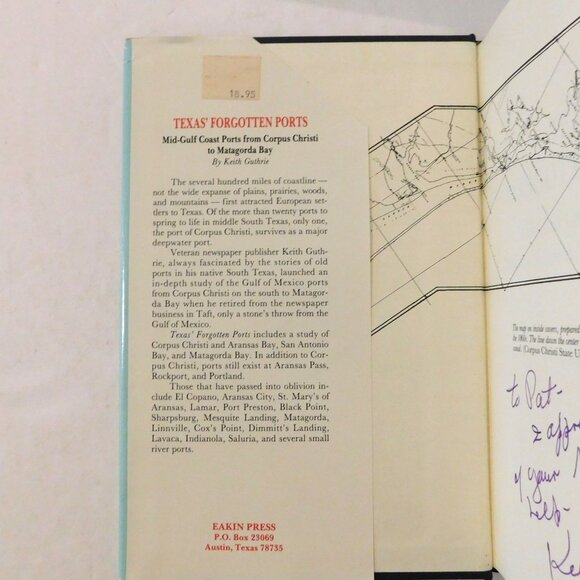 18.95
TEXAS' FORGOTTEN PORTS
Mid-Gulf Coast Ports from Corpus Christi
to Matagorda Bay
By Keith Guthrie
The several hundred miles of coastline —
not the wide expanse of plains, prairies, woods,
and mountains — first attracted European set-
tlers to Texas. Of the more than twenty ports to
spring to life in middle South Texas, only one,
the port of Corpus Christi, survives as a major
deepwater port.
Veteran newspaper publisher Keith Guth-
rie, always fascinated by the stories of old
ports in his native South Texas, launched an
in-depth study of the Gulf of Mexico ports
from Corpus Christi on the south to Matagor-
da Bay when he retired from the newspaper
business in Taft, only a stone's throw from the
Gulf of Mexico.
Texas' Forgotten Ports includes a study of
Corpus Christi and Aransas Bay, San Antonio
Bay, and Matagorda Bay. In addition to Cor-
pus Christi, ports still exist at Aransas Pass,
Rockport, and Portland.
Those that have passed into oblivion in-
clude El Copano, Aransas City, St. Mary's of
Aransas, Lamar, Port Preston, Black Point,
Sharpsburg, Mesquite Landing, Matagorda,
Linnville, Cox's Point, Dimmitt's Landing,
Lavaca, Indianola, Saluria, and several small
river ports.
EAKIN PRESS
P.O. Box 23069
Austin, Texas 78735
The map on inside covers, prepared
the 1860s. The line down the center
(Corpus Christi State U
to Pat-
your
help-